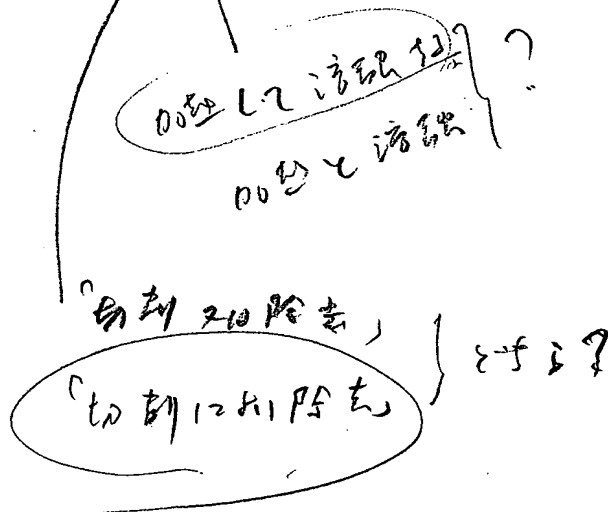 加熱して溶融 ?
加熱と溶融
「切削又は除去」
「切削により除去」 どちら?